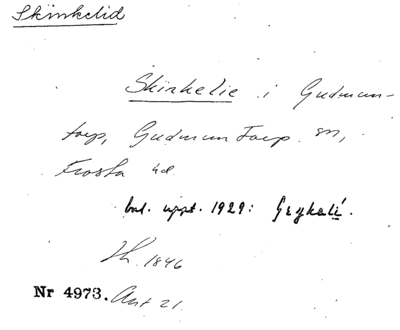 Skinkelid
Skinkelie i Gudmun-
torp, Gudmuntorp sn,
Frosta hd.
enl. uppt. 1929:
Th. 1846
Nr 4973. Ant 21.